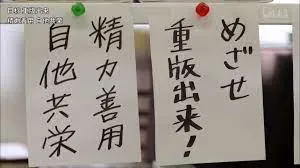 めざせ
重版出来!
精力善用
自他共栄